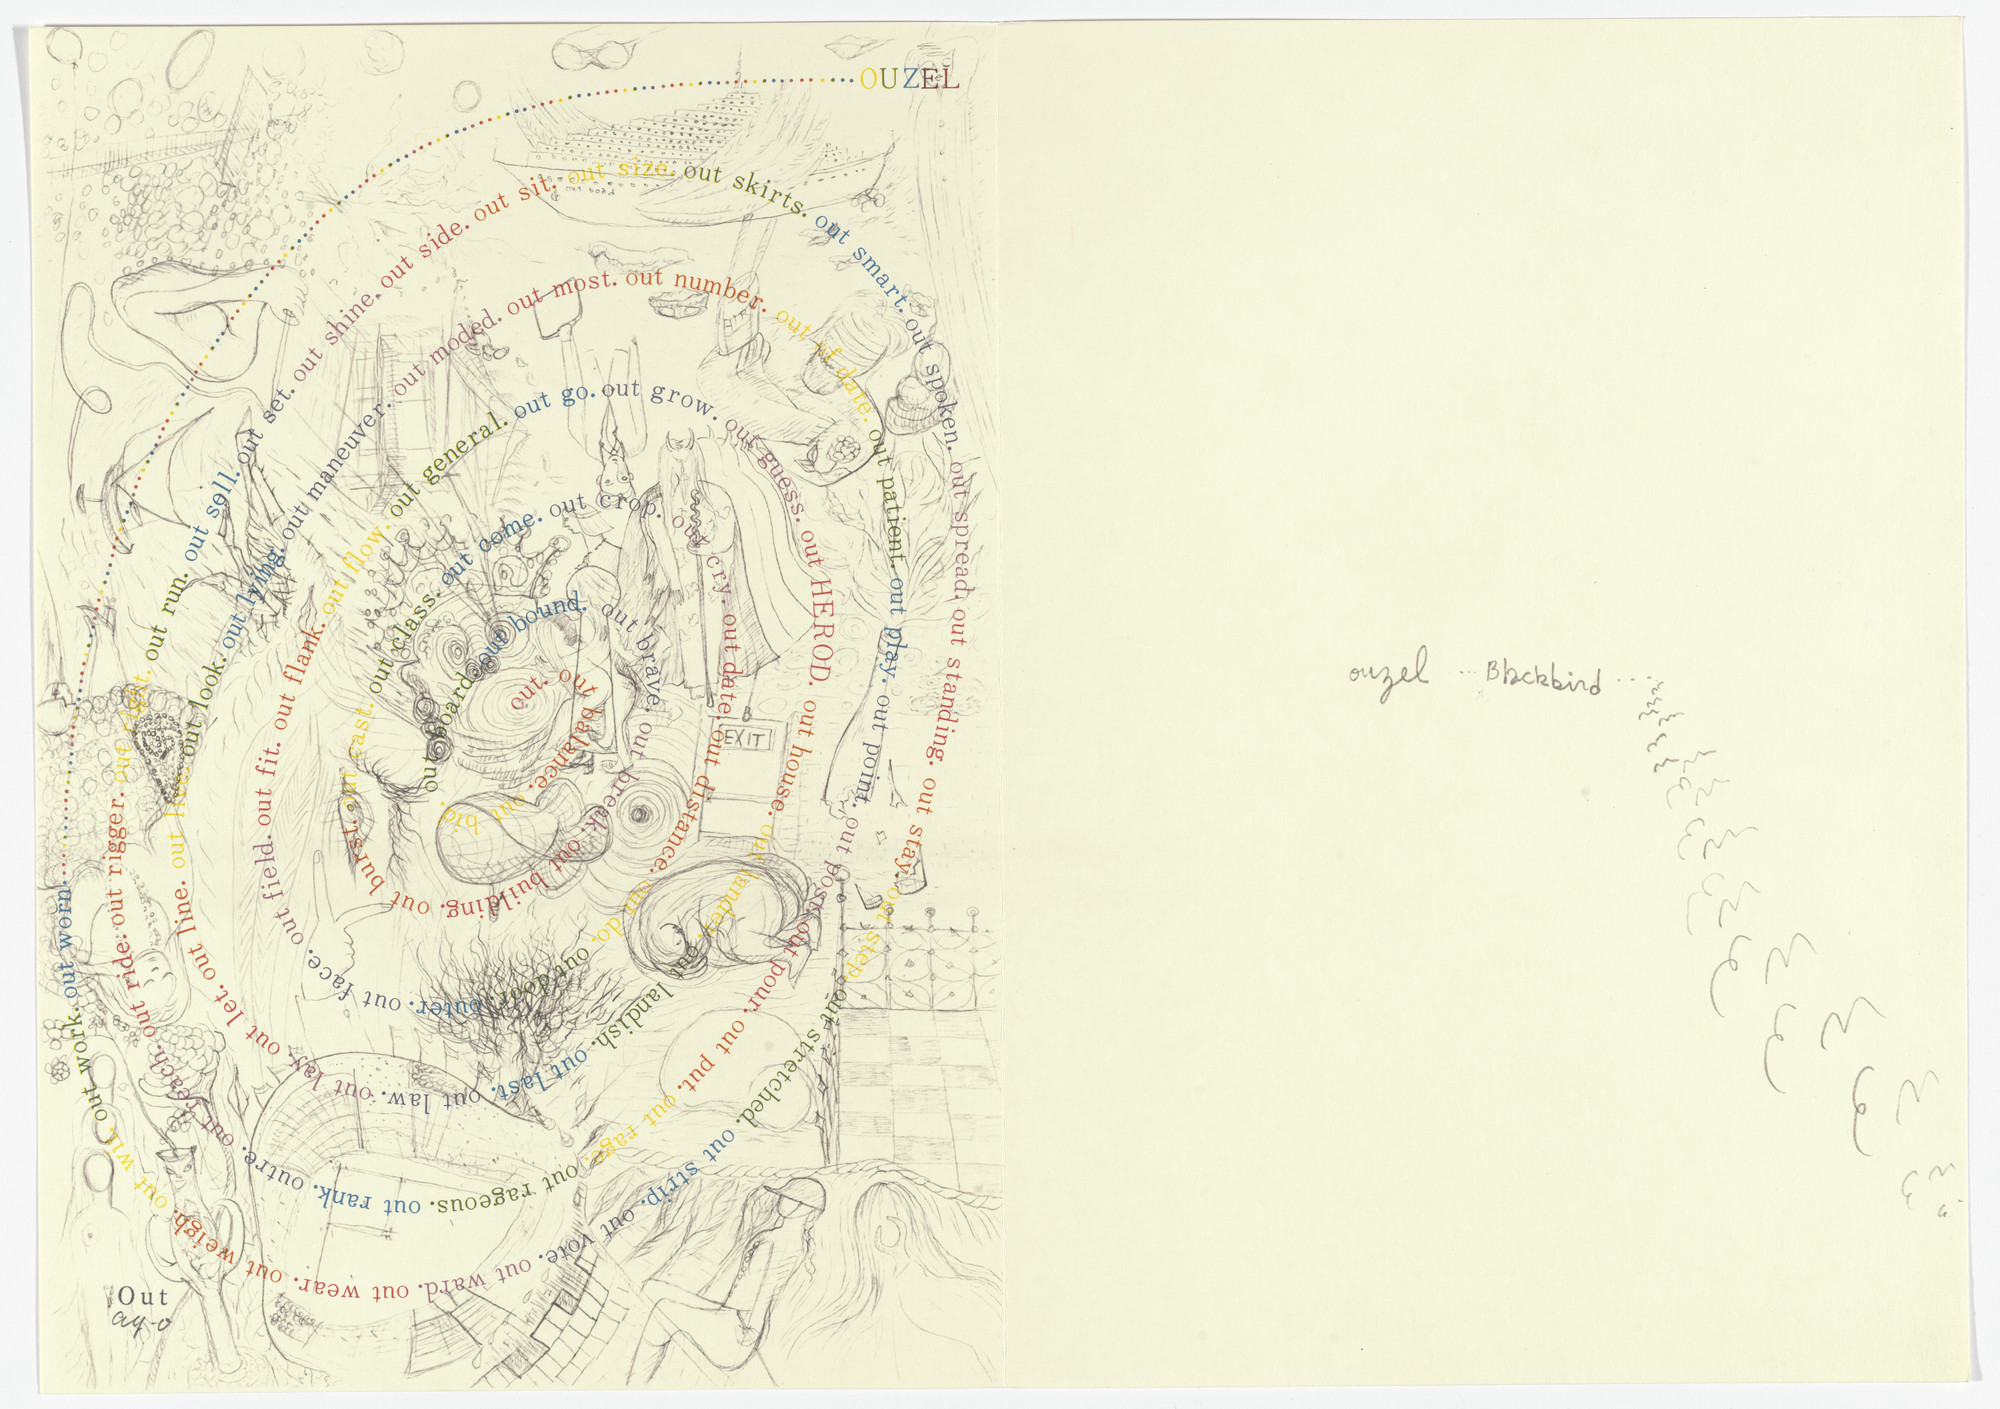 out. out balance. out bid. out board. out bound. out brave. out break. out building. out burst. out cast. out class. out come. out crop. out cry. out date. out distance. out do. out door. outer. out face. out field. out fit. out flank. out flow. out general. out go. out grow. out guess. out HEROD. out house. out lander. out landish. out last. out law. out lay. out let. out line. out live. out look. out lying. out maneuver. out moded. out most. out number. out of date. out patient. out play. out point. out post. out pour. out put. out rage. out rageous. out rank. outre. out reach. out ride. out rigger. out right. out run. out sell. out set. out shine. out side. out sit. out size. out skirts. out smart. out spoken. out spread. out standing. out stay. out step. out stretched. out strip. out vote. out ward. out wear. out weigh. out wit. out work. out worn. OUZEL
EXIT
Out
ag-o
ouzel ... Blackbird ....